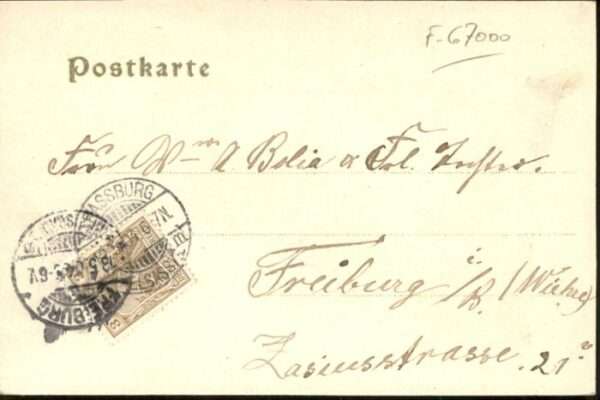 F-67000
Postkarte
Frau W A Bolia & Frl.
Freiburg i/B. (Wiehre)
Zasiusstrasse 21
STRASSBURG
FREIBURG